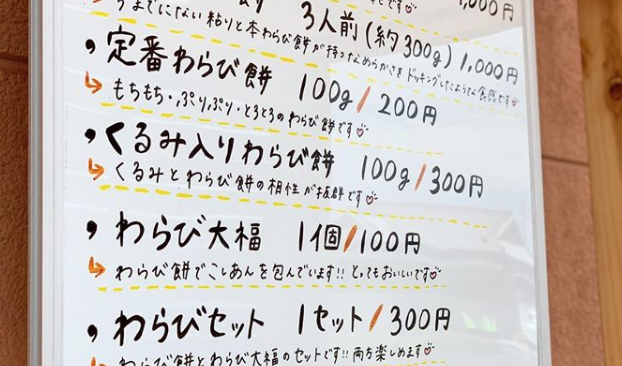 1,000円
3人前(約300g) 1,000円
今までにない粘りと本わらび餅が持つなめらかさをドッキングしたような食感です
・定番わらび餅 100g/200円
↳もちもち・ぷりぷり・とろとろのわらび餅です
・くるみ入りわらび餅 100g/300円
↳くるみとわらび餅の相性が抜群です
・わらび大福 1個/100円
↳わらび餅でこしあんを包んでいます!!とってもおいしいです
・わらびセット 1セット/300円
↳わらび餅とわらび大福のセットです!!両方楽しめます